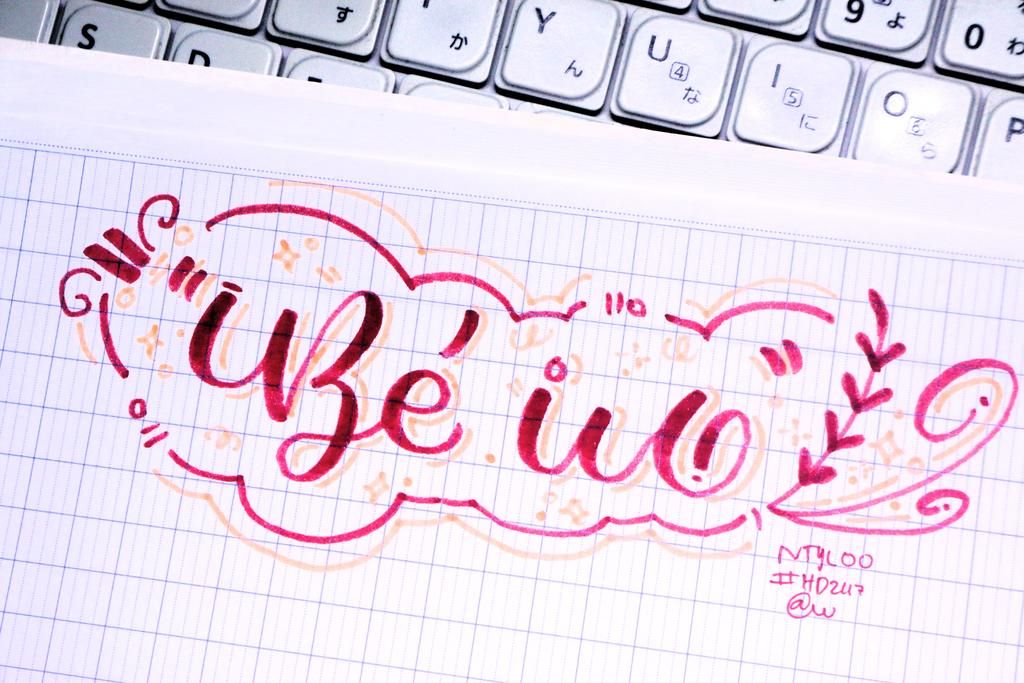 す
9 よ
0 わ
S
D
か
Y ん
U 4 な
I 5 に
O 6 ら
P
Bé iu
NTYLOO
#HD247